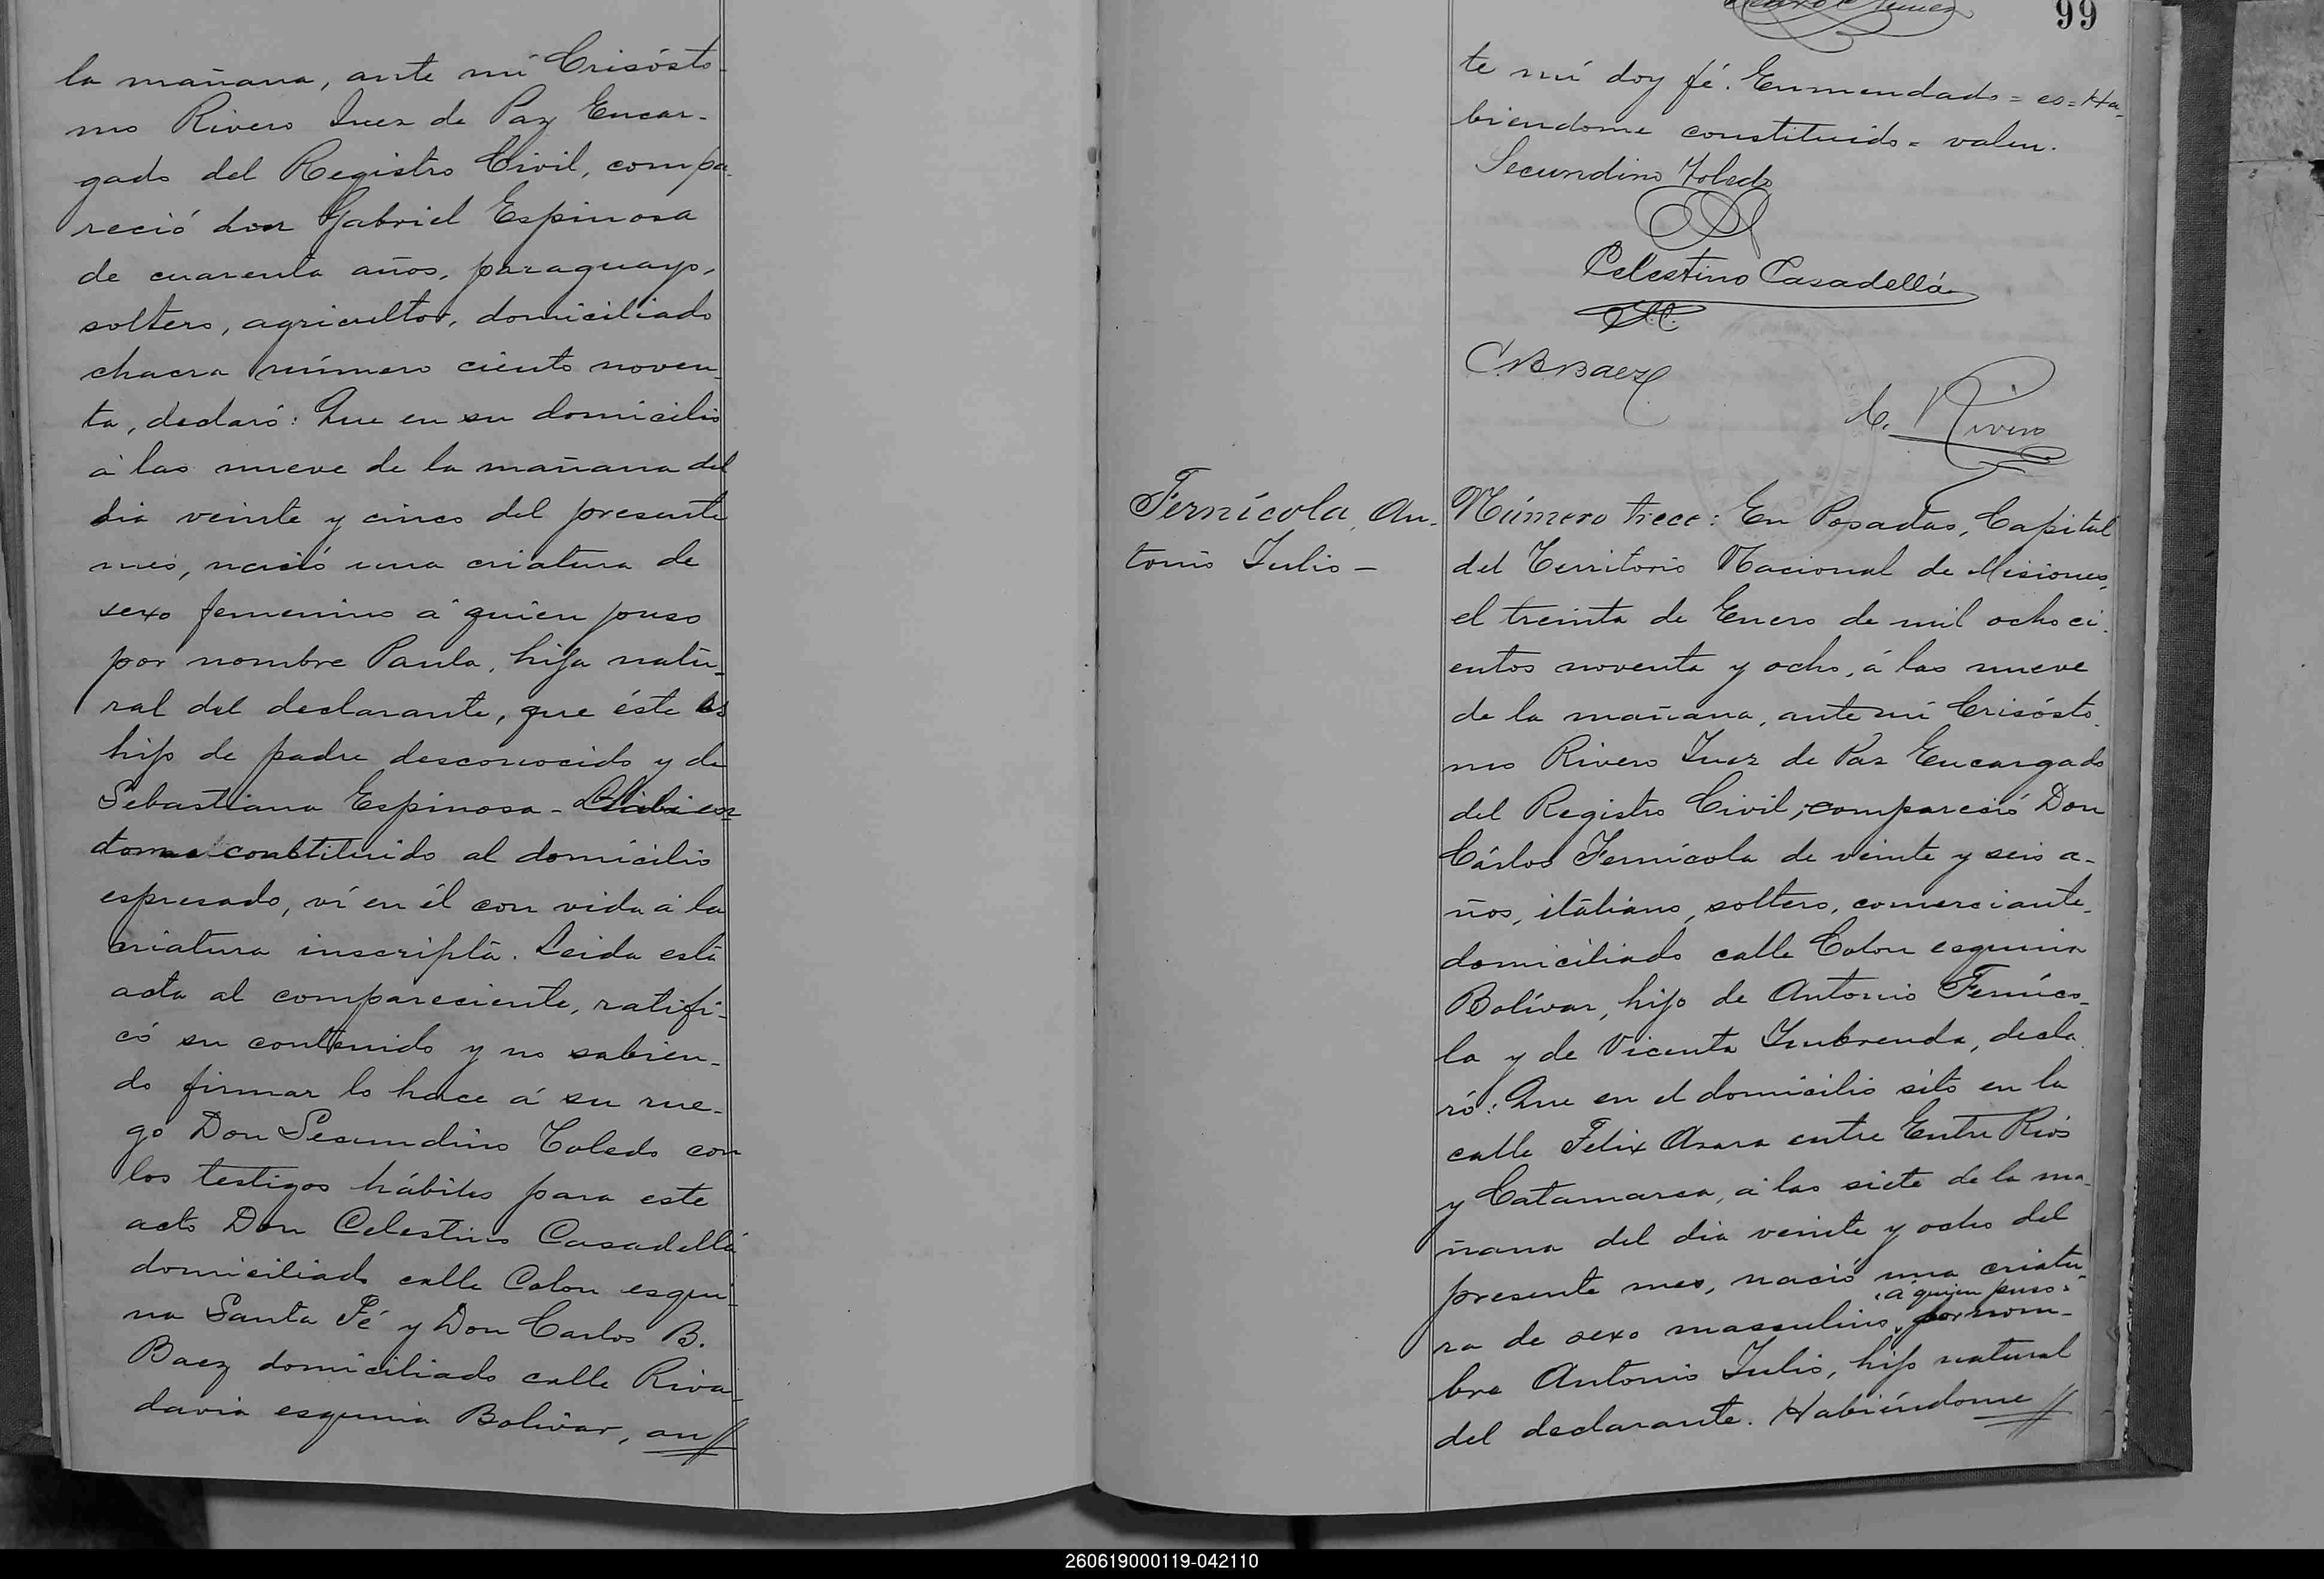 la mañana, ante mí Crisósto-
mo Rivero Juez de Paz Encar-
gado del Registro Civil, compa-
reció don Gabriel Espinosa
de cuarenta años, paraguayo,
soltero, agricultor, domiciliado
chacra número ciento noven-
ta, declaró: Que en su domicilio
á las nueve de la mañana del
dia veinte y cinco del presente
mes, nació una criatura de
sexo femenino á quien puso
por nombre Paula, hija natu-
ral del declarante, que éste es
hijo de padre desconocido y de
Sebastiana Espinosa - Habien
dome constituido al domicilio
espresado, ví en él con vida á la
criatura inscripta. Leida esta
acta al compareciente, ratifi-
có su contenido y no sabien-
do firmar lo hace á su rue-
go Don Secundino Toledo con
los testigos hábiles para este
acto Don Celestino Casadellá
domiciliado calle Colon esqui-
na Santa Fé y Don Carlos B.
Baez domiciliado calle Riva-
davia esquina Bolívar, an//
99
te mí doy fé. Enmendado = es = Ha-
biendome constituido = valen.
Secundino Toledo
Celestino Casadellá
C. B. Baez
C. Rivero
Fernícola, An-
tonio Julio -
Número trece: En Posadas, Capital
del Territorio Nacional de Misiones,
el treinta de Enero de mil ochoci-
entos noventa y ocho, á las nueve
de la mañana, ante mí Crisósto-
mo Rivero Juez de Paz Encargado
del Registro Civil, compareció Don
Cárlos Fernícola de veinte y seis a-
ños, italiano, soltero, comerciante,
domiciliado calle Colon esquina
Bolívar, hijo de Antonio Ferníco-
la y de Vicenta Imbrenda, decla-
ró: Que en el domicilio sito en la
calle Felix Asara entre Entre Rios
y Catamarca, á las siete de la ma-
ñana del dia veinte y ocho del
presente mes, nació una criatu-
ra de sexo masculino, á quien puso por nom-
bre Antonio Julio, hijo natural
del declarante. Habiéndome //
260619000119-042110